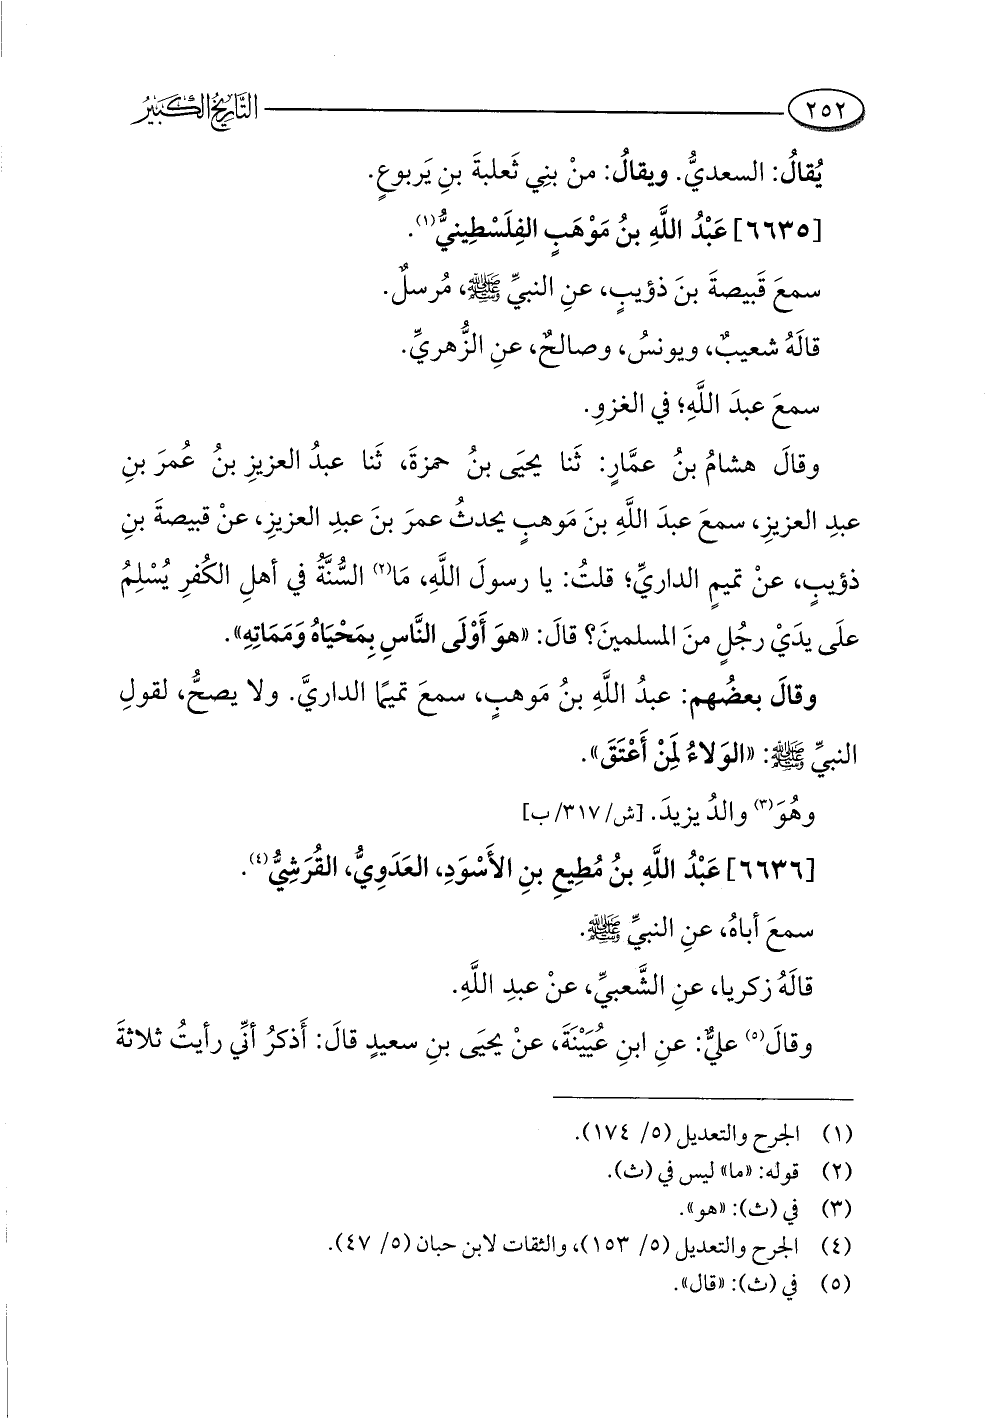 ٢٥٢ التاريخ الكبير
يُقالُ: السعديُّ. ويقالُ: منْ بنِي ثَعلبةَ بنِ يَربوعٍ.
[٦٦٣٥] عَبْدُ اللَّهِ بنُ مَوْهَبٍ الفِلَسْطِينيُّ(١).
سمعَ قَبيصةَ بنَ ذؤيبٍ، عنِ النبيِّ ﷺ، مُرسلٌ.
قالَهُ شعيبٌ، ويونسُ، وصالحٌ، عنِ الزُّهريِّ.
سمعَ عبدَ اللَّهِ؛ في الغزوِ.
وقالَ هشامُ بنُ عمَّارٍ: ثَنا يحيَى بنُ حمزةَ، ثَنا عبدُ العزيزِ بنُ عُمرَ بنِ
عبدِ العزيزِ، سمعَ عبدَ اللَّهِ بنَ مَوهبٍ يحدثُ عمرَ بنَ عبدِ العزيزِ، عنْ قبيصةَ بنِ
ذؤيبٍ، عنْ تميمٍ الداريِّ؛ قلتُ: يا رسولَ اللَّهِ، مَا(٢) السُّنَّةُ في أهلِ الكُفرِ يُسْلِمُ
علَى يدَيْ رجُلٍ منَ المسلمينَ؟ قالَ: «هوَ أَوْلَى النَّاسِ بِمَحْيَاهُ وَمَمَاتِهِ».
وقالَ بعضُهم: عبدُ اللَّهِ بنُ مَوهبٍ، سمعَ تميمًا الداريَّ. ولا يصحُّ، لقولِ
النبيِّ ﷺ: «الوَلاءُ لِمَنْ أَعْتَقَ».
وهُوَ(٣) والدُ يزيدَ. [ش/ ٣١٧/ ب]
[٦٦٣٦] عَبْدُ اللَّهِ بنُ مُطِيعِ بنِ الأَسْوَدِ، العَدَوِيُّ، القُرَشِيُّ(٤).
سمعَ أباهُ، عنِ النبيِّ ﷺ.
قالَهُ زكريا، عنِ الشَّعبيِّ، عنْ عبدِ اللَّهِ.
وقالَ(٥) عليٌّ: عنِ ابنِ عُيَيْنَةَ، عنْ يحيَى بنِ سعيدٍ قالَ: أَذكرُ أنِّي رأيتُ ثلاثةَ
(١) الجرح والتعديل (٥/ ١٧٤).
(٢) قوله: «ما» ليس في (ث).
(٣) في (ث): «هو».
(٤) الجرح والتعديل (٥/ ١٥٣)، والثقات لابن حبان (٥/ ٤٧).
(٥) في (ث): «قال».